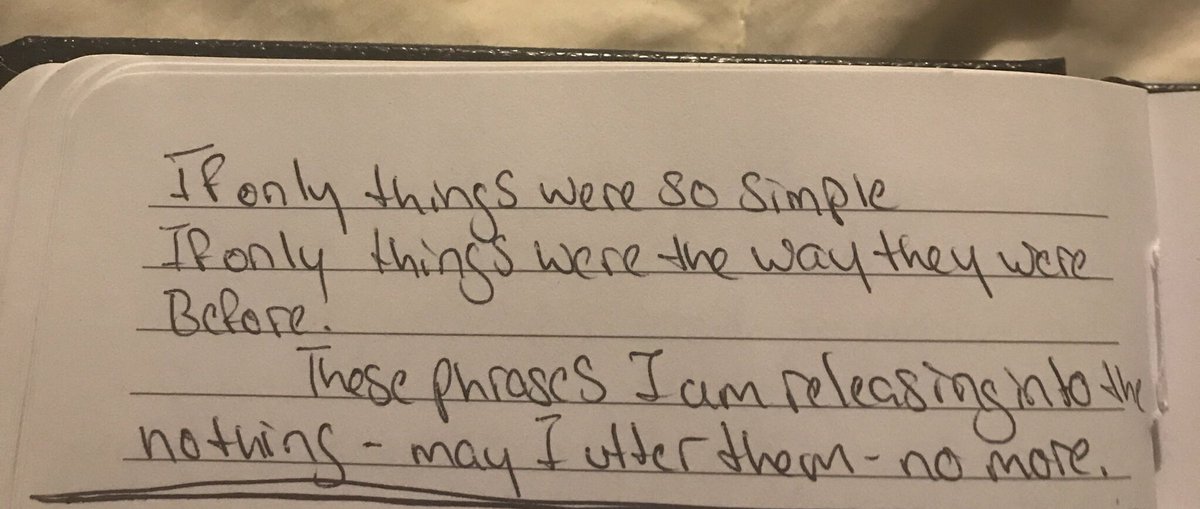 If only things were so simple
If only things were the way they were
Before.
These phrases I am releasing into the
nothing - may I utter them - no more.